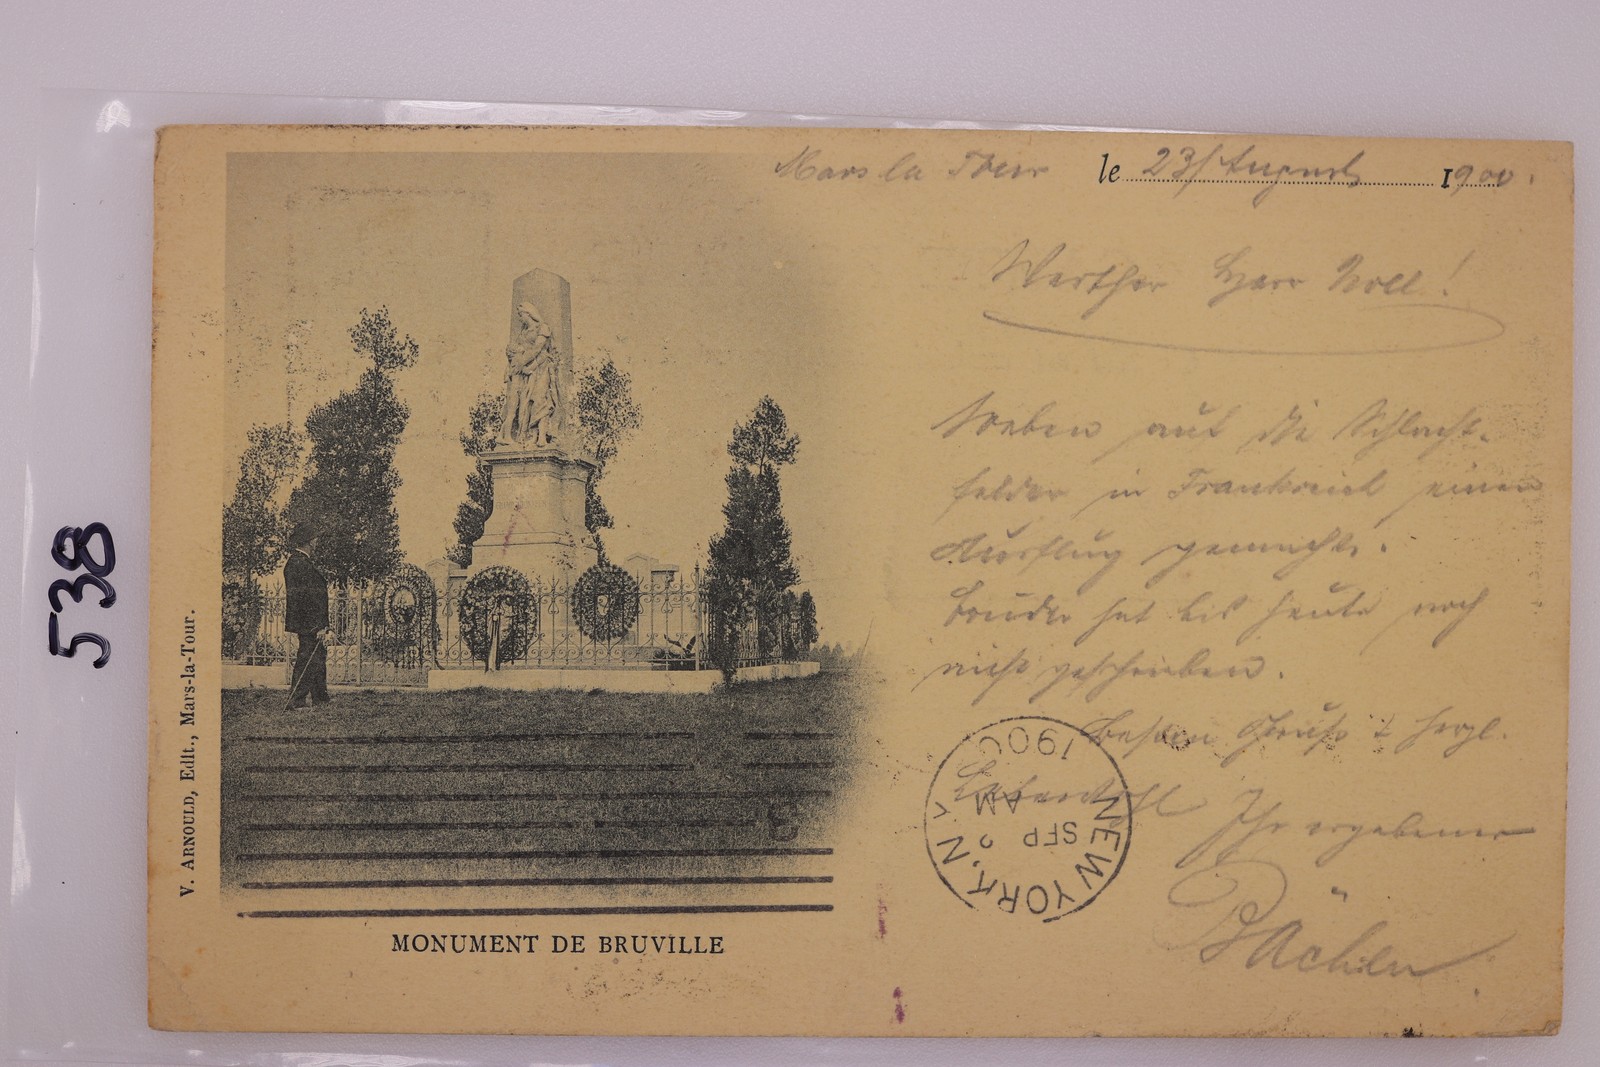 538
V. ARNOULD, Edit., Mars-la-Tour.
Mars la Tour le 23/ August 1900.
Werther Herr Noll!
Soeben auf die Schlacht-
felder in Frankreich einen
Ausflug gemacht.
Bruder hat bis heute noch
nicht geschrieben.
Besten Gruß & herzl.
Lebewohl Ihr ergebener
NEW YORK, N
SEP
AM
1900
MONUMENT DE BRUVILLE